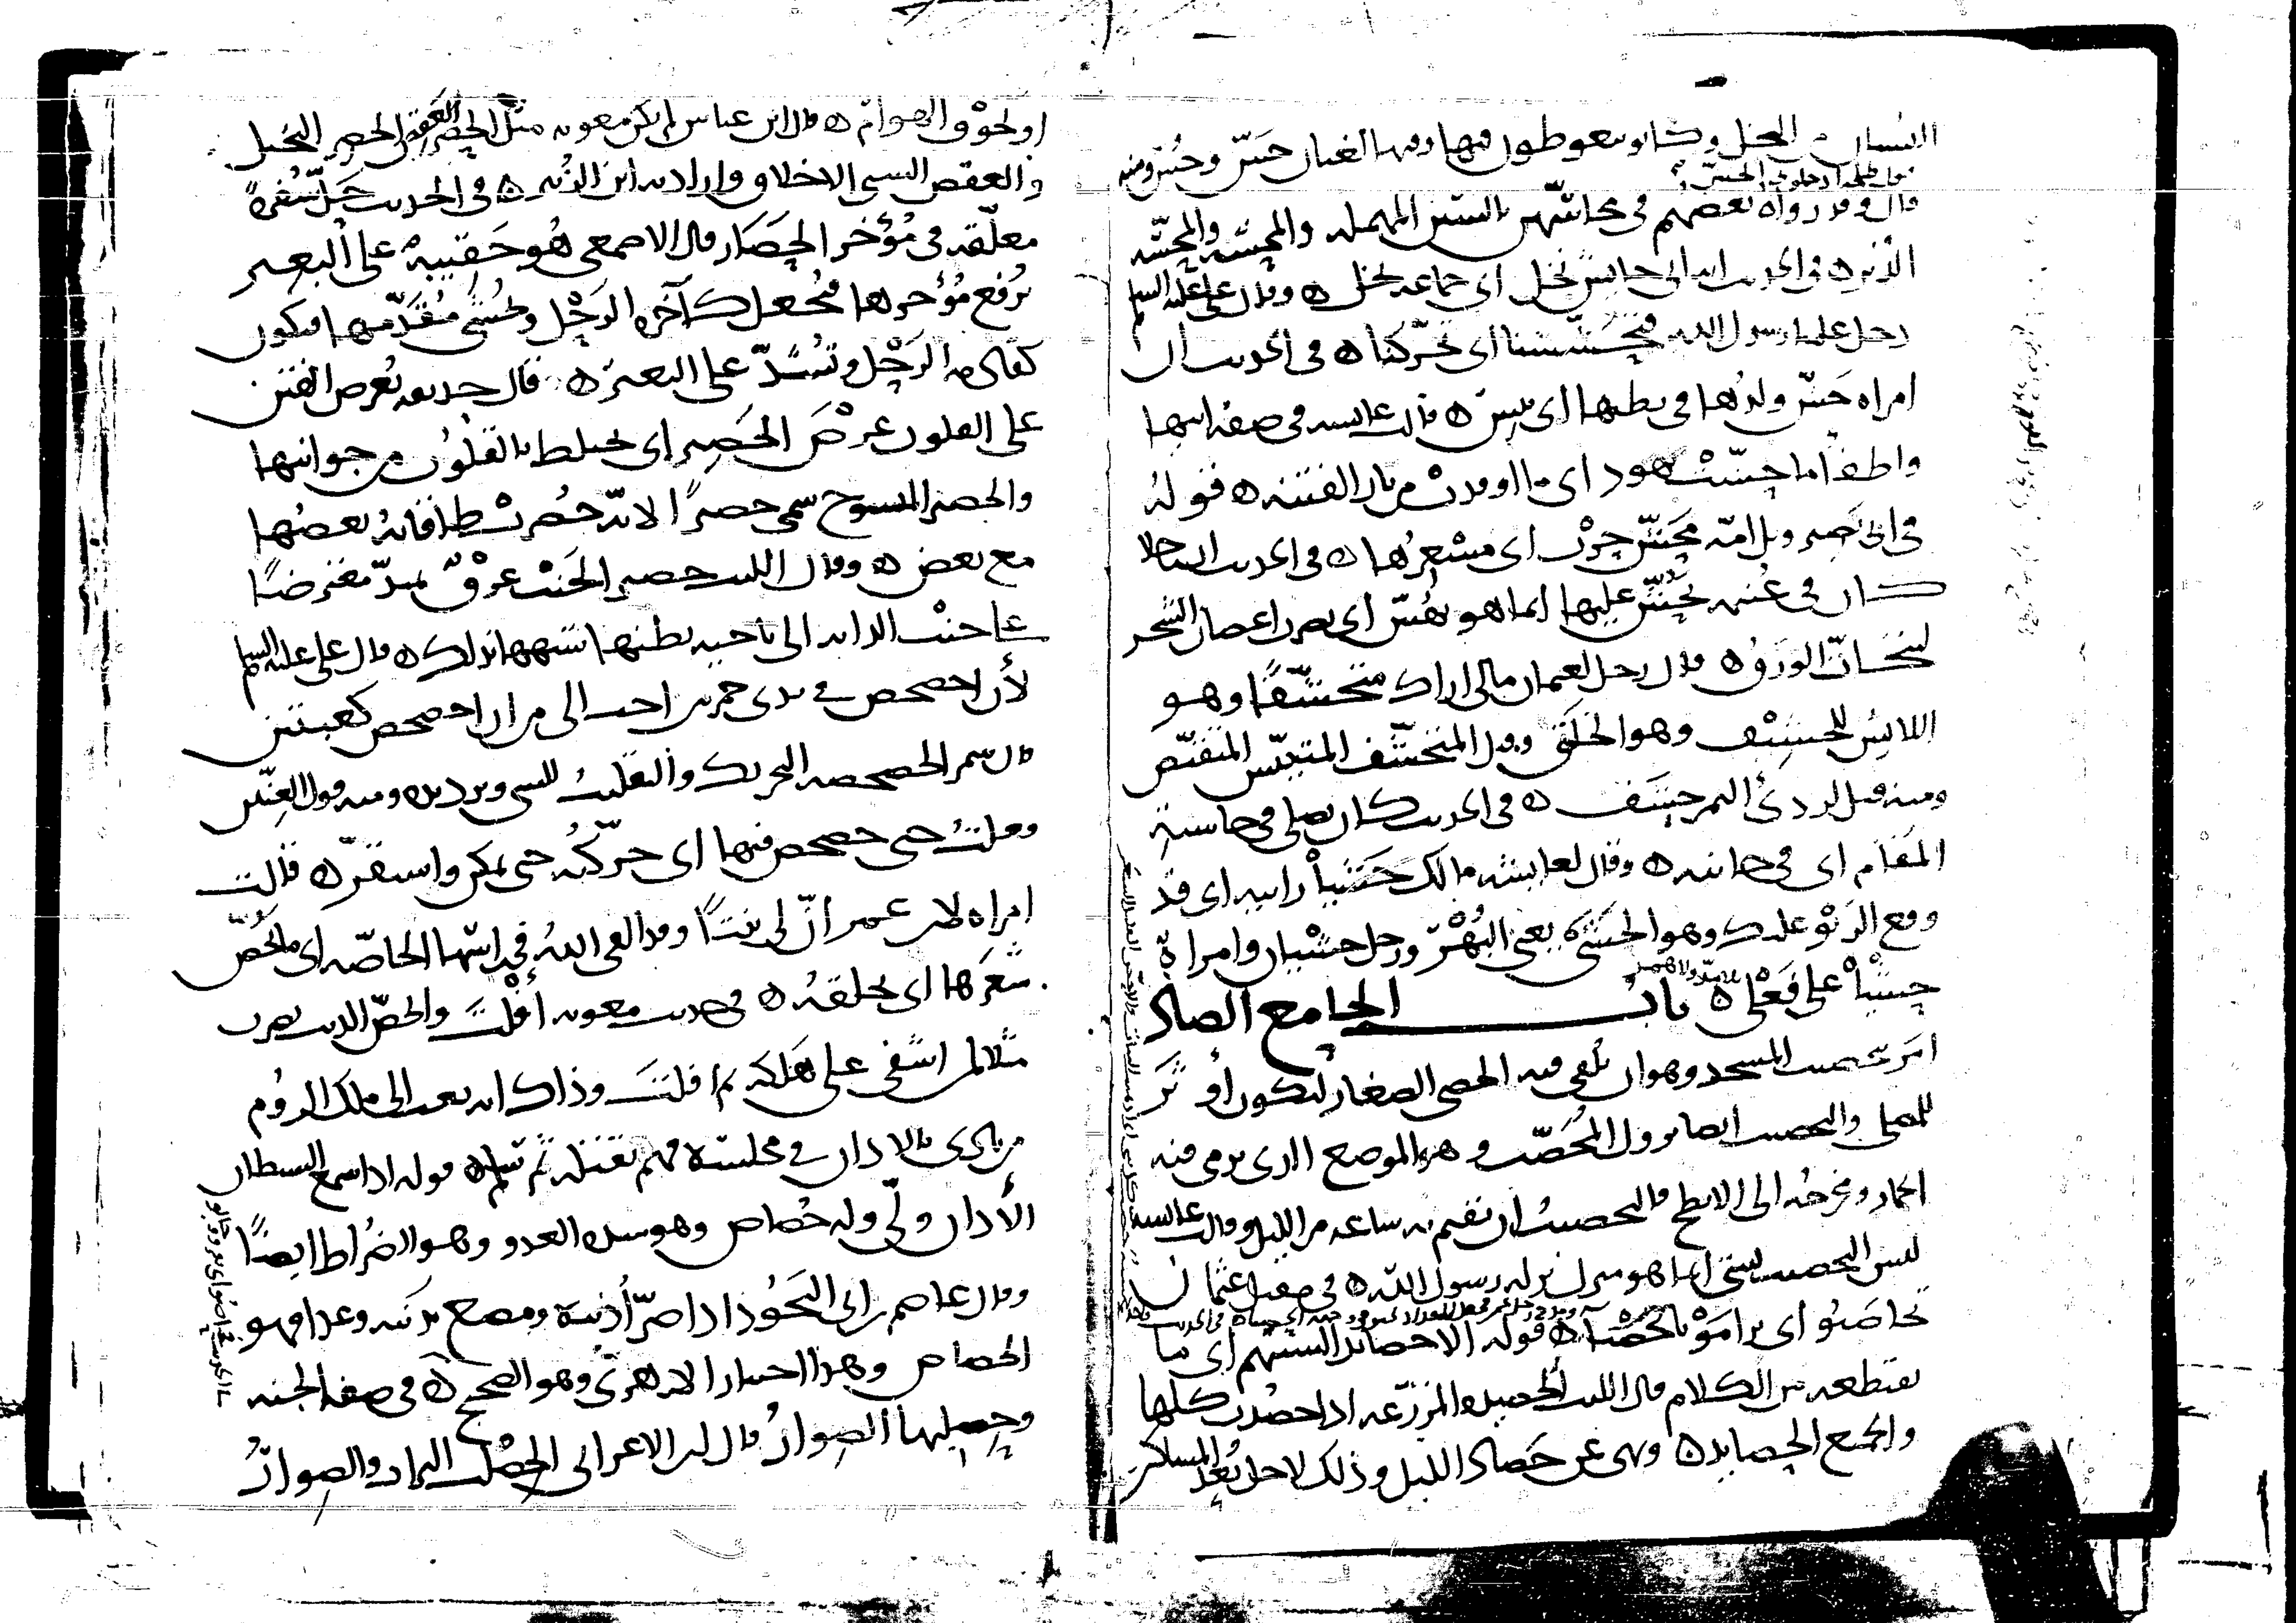 البستان من النخل وكانوا يتغوطون فيها وفيها لغتان حَشّ وحُشّ ومنه
قال وقد رواه بعضهم في محاسّهن بالسين المهملة والمحشّة والمحسّة
الدّبر ه في الحديث انه اتى حايش نخل اي جماعة نخل ه وقال علي عليه السلم
دخل علينا رسول الله فتحشحشنا اي تحرّكنا ه في الحديث ان
امراة حَشّ ولدُها في بطنها اي يبس ه قالت عايشة في صفة ابيها
واطفأ ما حشّت يهود اي ما اوقدت من نار الفتنة ه قوله
في ابي بصير ويل امّه محشّ حرب اي مسعرها ه في الحديث ان رجلا
كان في غنمه يحشّ عليها انما هو يهشّ اي يضرب اغصان الشجر
لينحاتّ الورق ه قال رجل لعثمان مالي اراك متحشّفًا وهو
اللابس للحشيف وهو الخلق وقيل المتحشّف المتيبّس المتقبّض
ومنه قيل لردئ التمر حشف ه في الحديث كان يصلي في حاشية
المقام اي في جانبه ه وقال لعايشة مالك حشيا رابية اي قد
وقع الرّبو عليك وهو الحشى يعني البُهْر ورجل حشيان وامراة
حشيا على فَعْلى ه بلا مدّ ولا همز باب الحا مع الصاد
امر بتحصيب المسجد وهو ان يلقى فيه الحصى الصغار ليكون اوثر
للمصلي والتحصيب ايضا نزول المحصّب وهو الموضع الذي يرمى فيه
الجمار ومخرجه الى الابطح فالتحصيب ان تقيم به ساعة من الليل وقالت عايشة
ليس التحصيب بشي انما هو منزل نزله رسول الله ه في مقتل عثمان
تحاصبُوا اي تراموا بالحصباء ه قوله الا حصائد السنتهم اي ما
تقتطعه من الكلام قال الليث الحصيد المزرعة اذا حصدت كلها
والجمع الحصايد ه ونهى عن حصاد الليل وذلك لاجل بُعد المساكين
او لخوف الهوامّ ه قال ابن عباس لم يكن معوية مثل الحصر العقص الحصر البخيل
والعقص السيي الاخلاق واراد به ابن الزبير ه في الحديث حَلّ سُفرة
معلّقة في مؤخر الحِصَار قال الاصمعي هو حقيبة على البعير
يرفع مؤخرها فتجعل كآخرة الرّحل ويُحشى مقدّمها فيكون
كقادمة الرّحل وتشدّ على البعير ه قال حذيفة تُعرض الفتن
على القلوب عرض الحصير اي تحيط بالقلوب من جوانبها
والحصير المنسوج سمي حصيرًا لانه حصرت طاقاته بعضها
مع بعض ه وقال الليث حصير الجنب عرق يمتدّ معترضًا
على جنب الدابة الى ناحية بطنها شبهها بذلك ه قال علي عليه السلم
لأن احصحص في يدي جمرتين احب الي من ان احصحص كعبتين
قال شمر الحصحصة التحريك والتقليب للشي وترديده ومنه قول العنّين
فعلت حتى حصحص فيها اي حرّكته حتى تمكن واستقرّ ه قالت
امراة لابن عمر انّ لي بنتًا وقد القى الله في راسها الحاصّة اي ما يحُصّ
شعرها اي يحلقه ه في حديث معوية أفلتَ وانحصّ الذنب يضرب
مثلا لمن اشفى على هلكة ثم افلت وذاك انه بعث الى ملك الروم
من ينادي بالاذان في مجلسه فهمّ بقتله ثم سلم ه قوله اذا سمع الشيطان
الأذان ولّى وله حُصاص وهو شدة العدو وهو الضراط ايضًا
وقال عاصم بن ابي النجود اذا صرّ أذنيه ومصع بذنبه وعدا فهو
الحصاص وهذا اختيار الازهري وهو الصحيح ه في صفة الجنة
وحِصلبها الصوار قال ابن الاعرابي الحصلب التراب والصوارُ